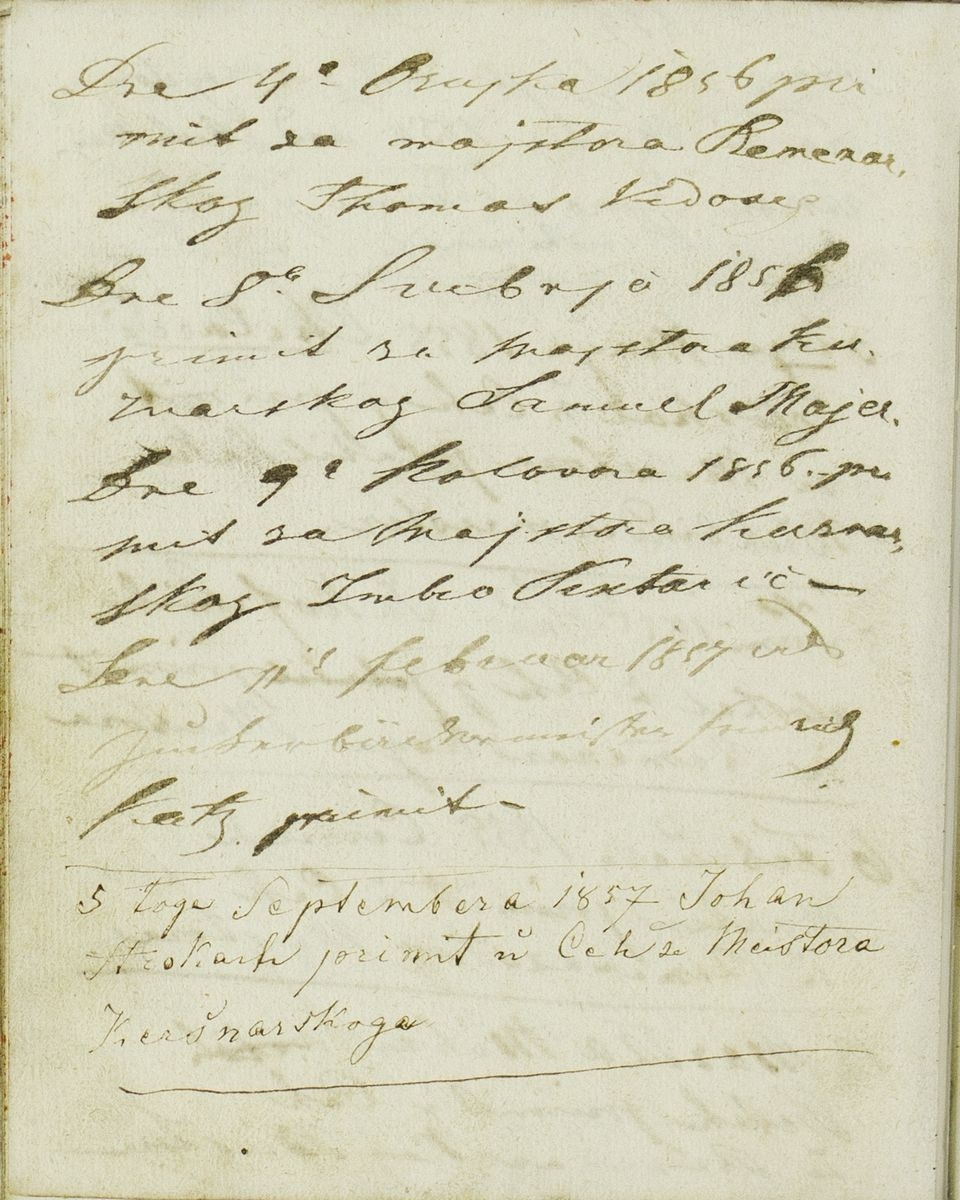 Dne 4a Ožujka 1856 pri
mit za majstora Remenar,
skog Thomas
Dne 8a Svibnja 1856
primit za majstora ku,
znarskog Samuel Majer.
Dne 9a Kolovoza 1856. pri
mit za majstora kuznar,
skog Imbro
Dene 11t februar 1857 
Zuckerbäckermeister
Katz primit –
5 toga Septembera 1857 Johan
primit u Ceh za Meistora
Keršnarskoga